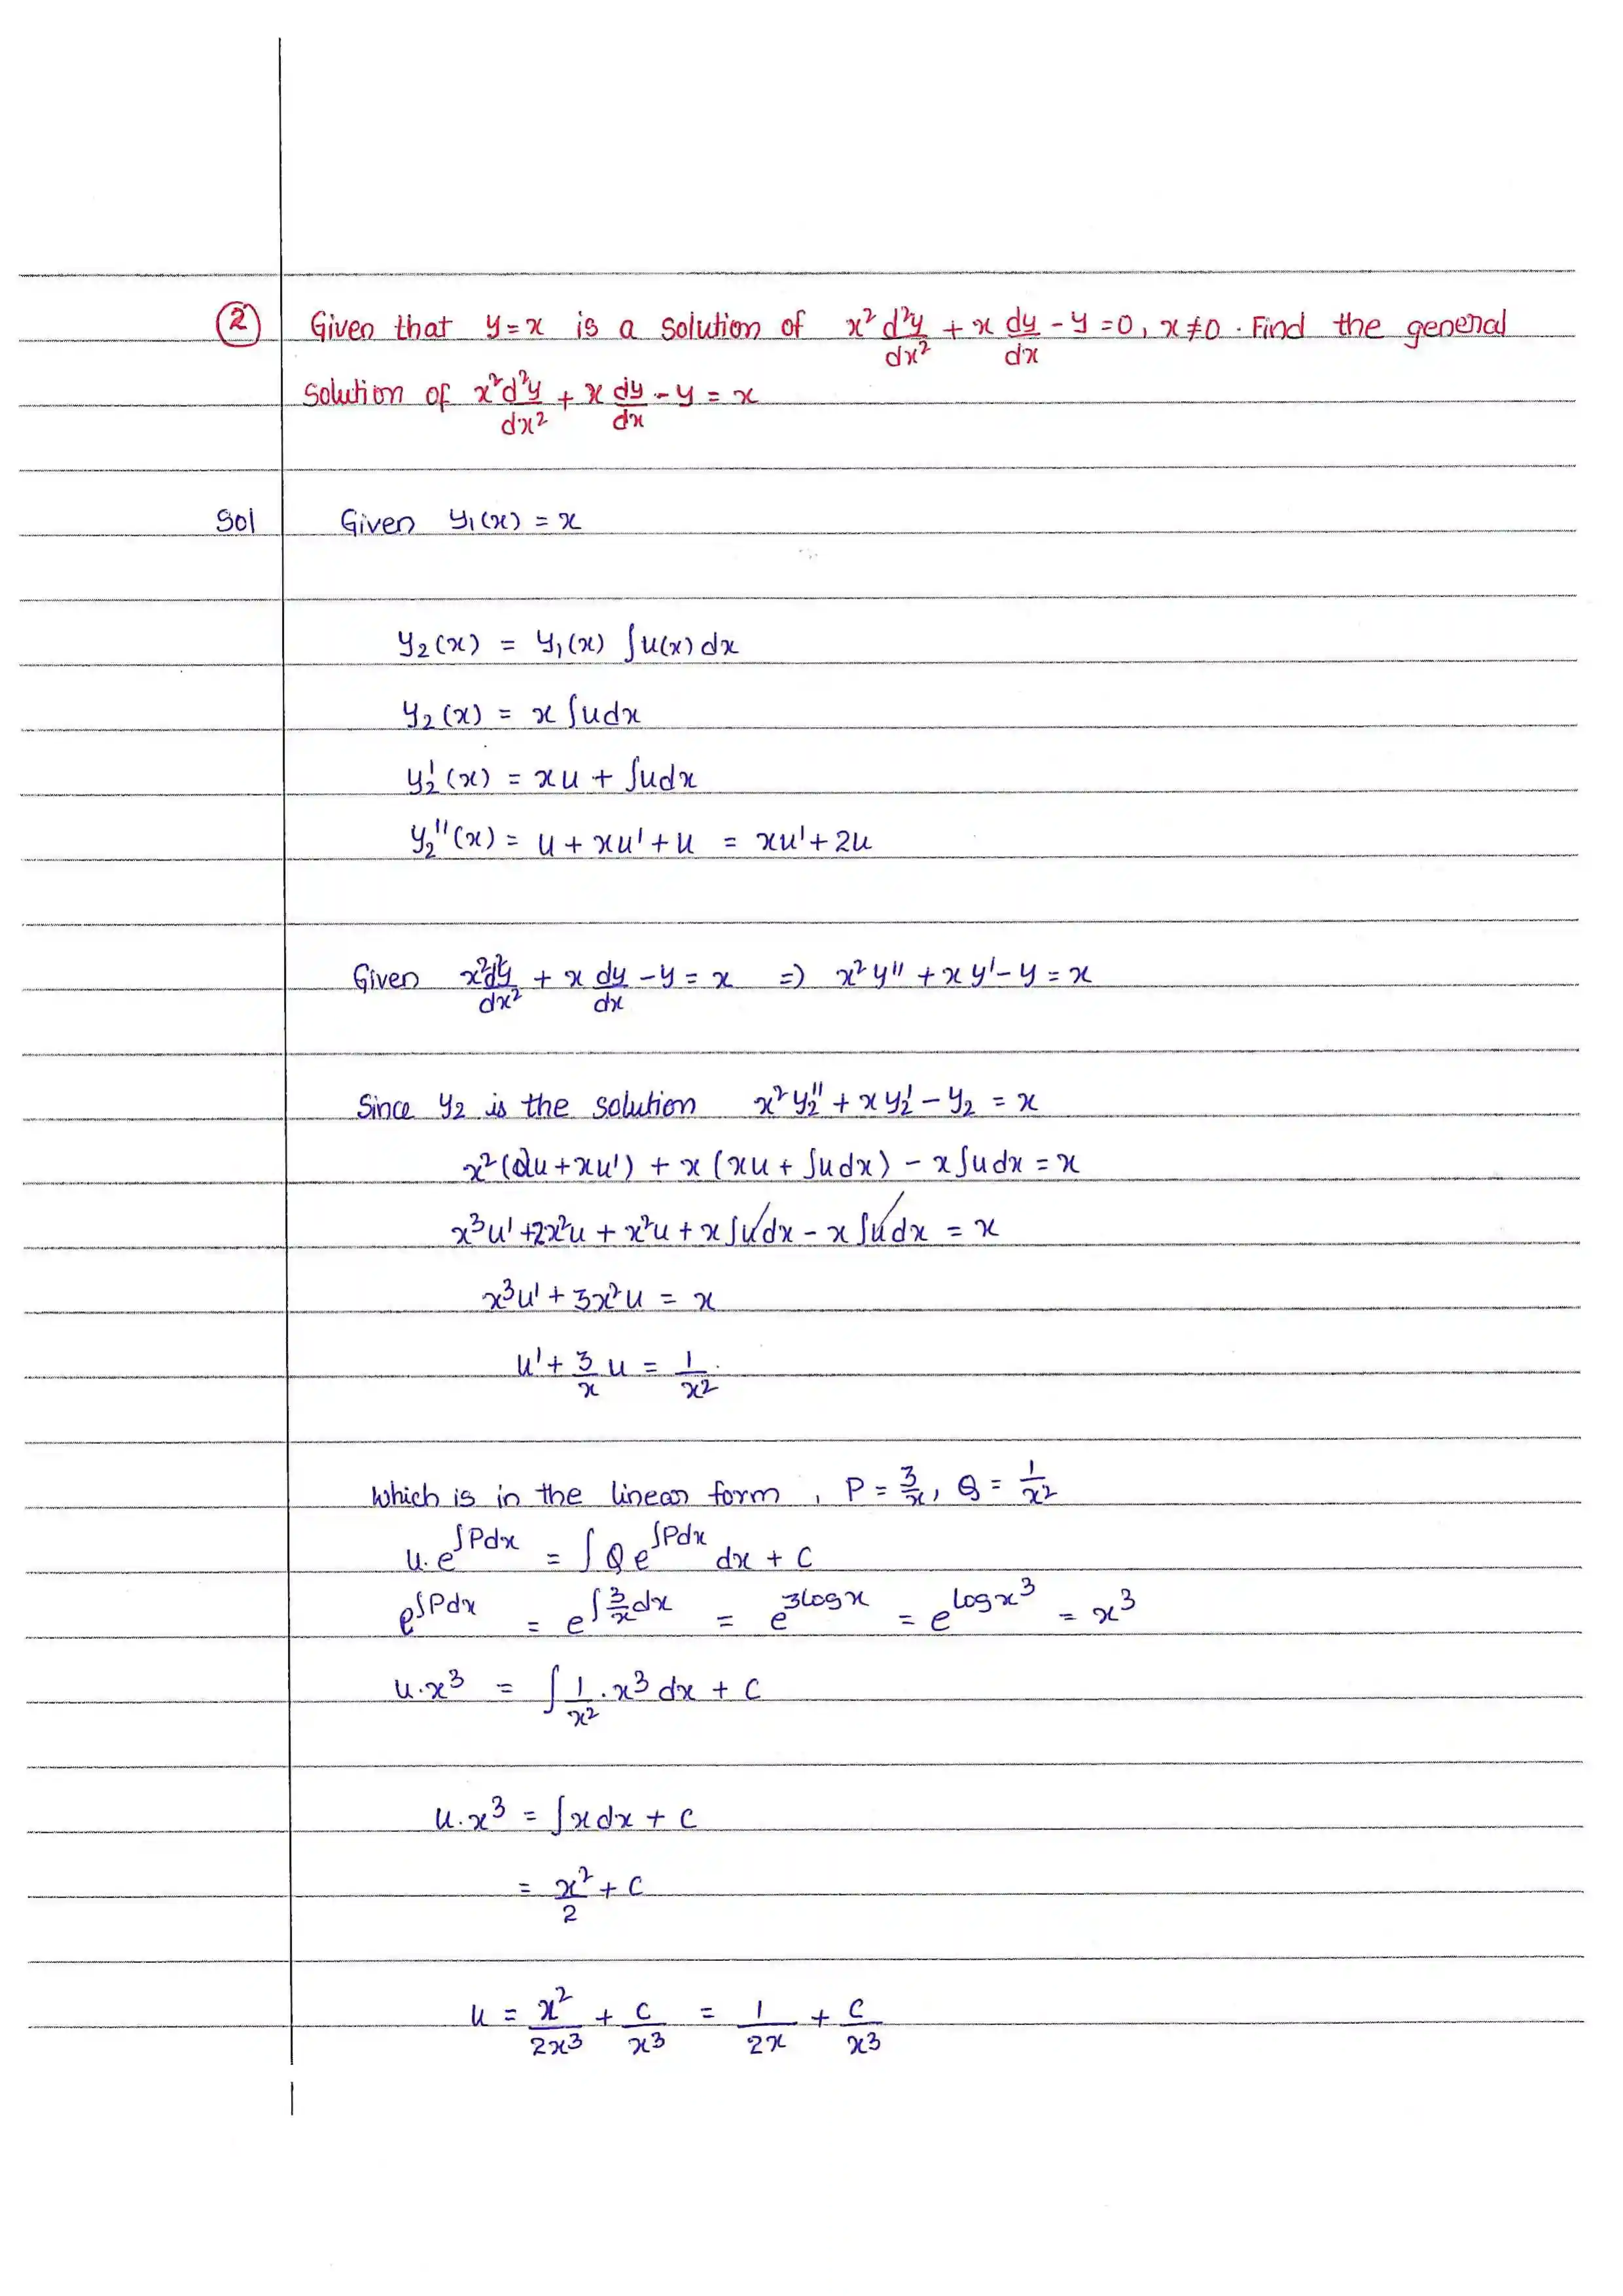 ② Given that y = x is a solution of x² d²y/dx² + x dy/dx - y = 0, x ≠ 0. Find the general
solution of x² d²y/dx² + x dy/dx - y = x
Sol Given y₁(x) = x
y₂(x) = y₁(x) ∫u(x) dx
y₂(x) = x ∫udx
y₂'(x) = xu + ∫udx
y₂''(x) = u + xu' + u = xu' + 2u
Given x² d²y/dx² + x dy/dx - y = x => x²y'' + xy' - y = x
Since y₂ is the solution x²y₂'' + xy₂' - y₂ = x
x²(2u + xu') + x(xu + ∫udx) - x∫udx = x
x³u' + 2x²u + x²u + x∫udx - x∫udx = x
x³u' + 3x²u = x
u' + 3/x u = 1/x²
Which is in the linear form, P = 3/x, Q = 1/x²
u. e^∫Pdx = ∫Q e^∫Pdx dx + c
e^∫Pdx = e^∫3/x dx = e^3logx = e^logx³ = x³
u.x³ = ∫1/x² . x³ dx + c
u.x³ = ∫x dx + c
= x²/2 + c
u = x²/2x³ + c/x³ = 1/2x + c/x³